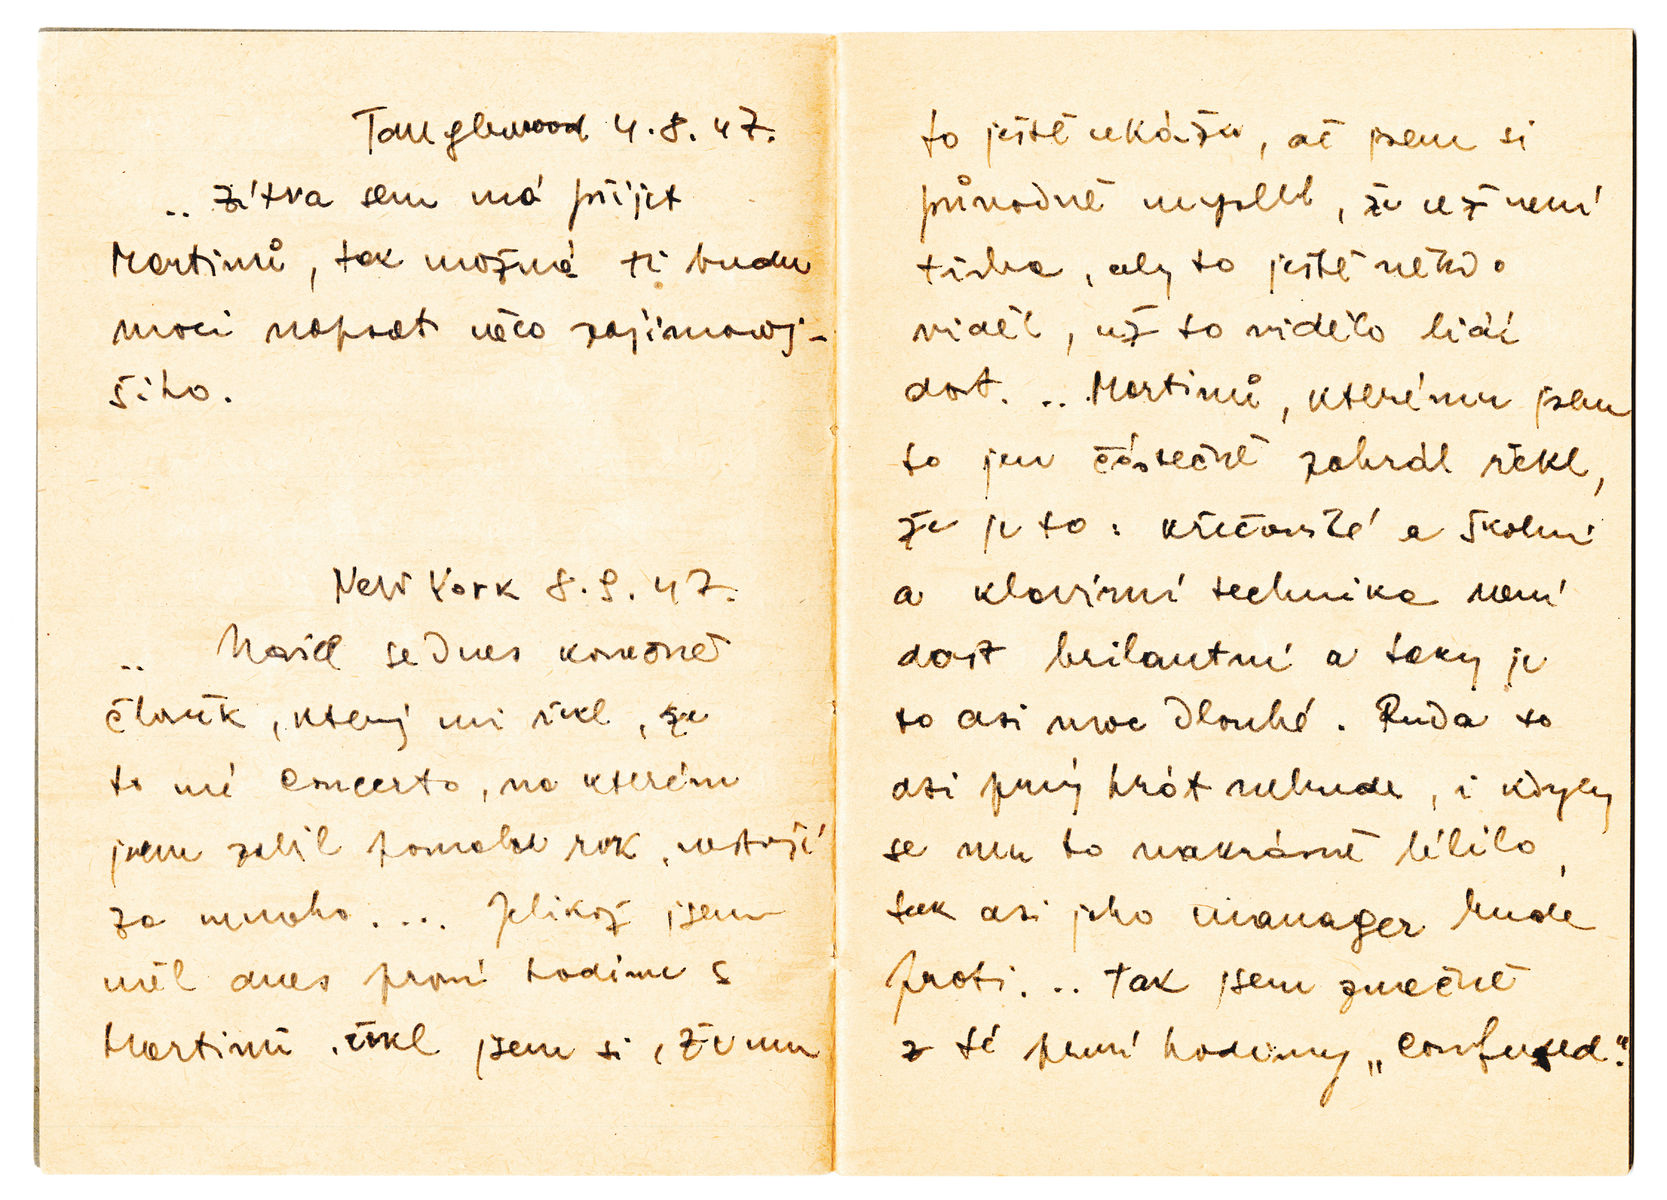 Tanglewood 4.8.47.
.. Zítra sem má přijet
Martinů, tak možná ti budu
moci napsat něco zajímavěj-
šího.
New York 8.9.47.
.. Našel se dnes konečně
člověk, který mi řekl, že
to mé Concerto, na kterém
jsem zabil pomalu rok, nestojí
za mnoho. ... Jelikož jsem
měl dnes první hodinu s
Martinů, řekl jsem si, že mu
to ještě ukážu, ač jsem si
původně myslel, že už není
třeba, aby to ještě někdo
viděl, už to vidělo lidí
dost. .. Martinů, kterému jsem
to jen částečně zahrál řekl,
že je to: křečovité a školní
a klavírní technika není
dost brilantní a taky je
to asi moc dlouhé. Ruda to
asi prý hrát nebude, i kdyby
se mu to nakrásně líbilo,
tak asi jeho manager bude
proti. .. Tak jsem značně
z té první hodiny „confused".